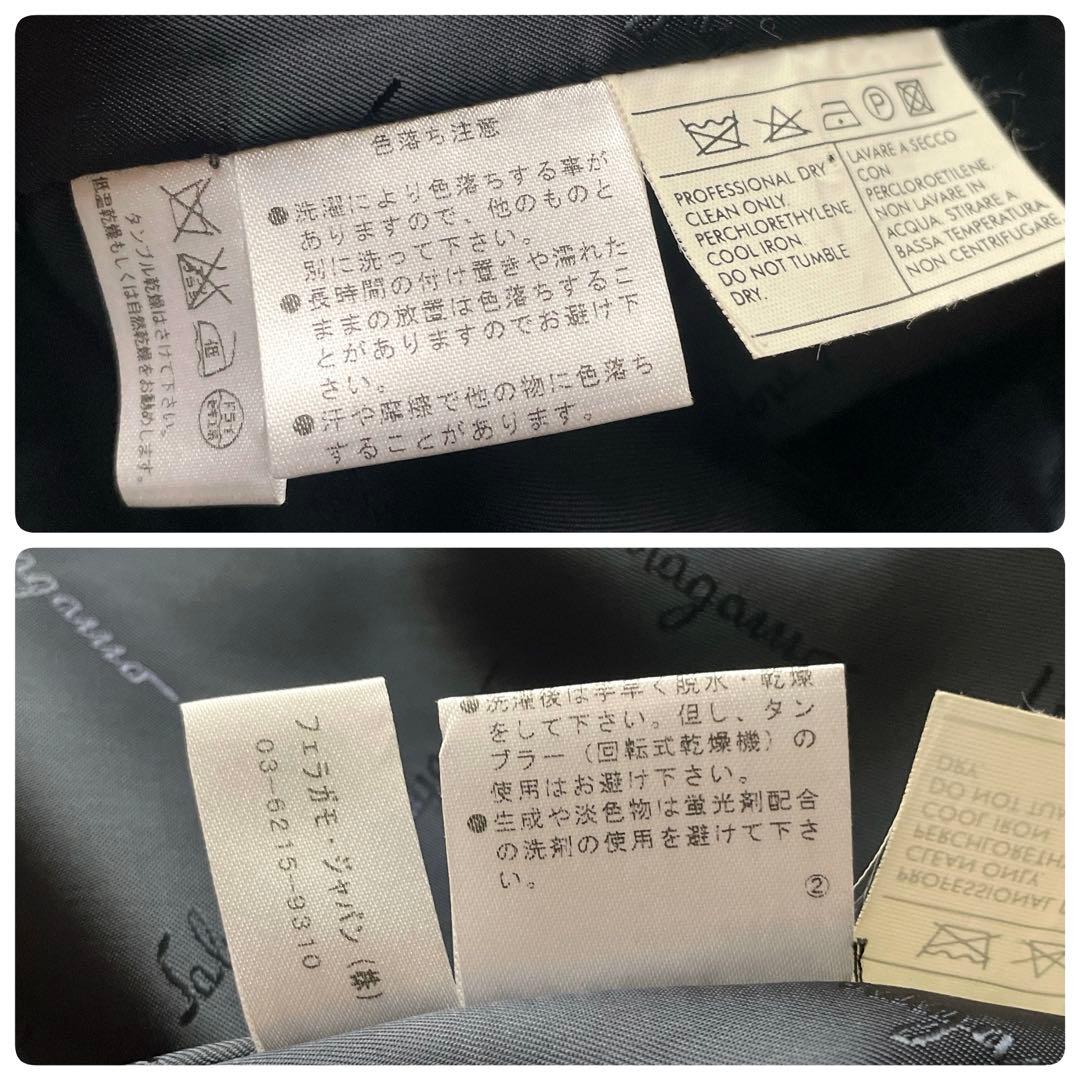 色落ち注意
●洗濯により色落ちする事が
ありますので、他のものと
別に洗って下さい。
●長時間の付け置きや濡れた
ままの放置は色落ちするこ
とがありますのでお避け下
さい。
●汗や摩擦で他の物に色落ち
することがあります。
低
ドライ
タンブル乾燥はさけて下さい。
低温乾燥もしくは自然乾燥をお勧めします。
P
PROFESSIONAL DRY
CLEAN ONLY.
PERCHLORETHYLENE.
COOL IRON.
DO NOT TUMBLE
DRY.
LAVARE A SECCO
CON
PERCLOROETILENE.
NON LAVARE IN
ACQUA. STIRARE A
BASSA TEMPERATURA.
NON CENTRIFUGARE.
フェラガモ・ジャパン(株)
03-6215-9310
●洗濯後は手早く脱水・乾燥
をして下さい。但し、タン
ブラー(回転式乾燥機)の
使用はお避け下さい。
●生成や淡色物は蛍光剤配合
の洗剤の使用を避けて下さ
い。
②
DRY.
DO NOT TUM
COOL IRON.
PERCHLORETH
CLEAN ONLY.
PROFESSIONAL
agamo
ragamo
Sal